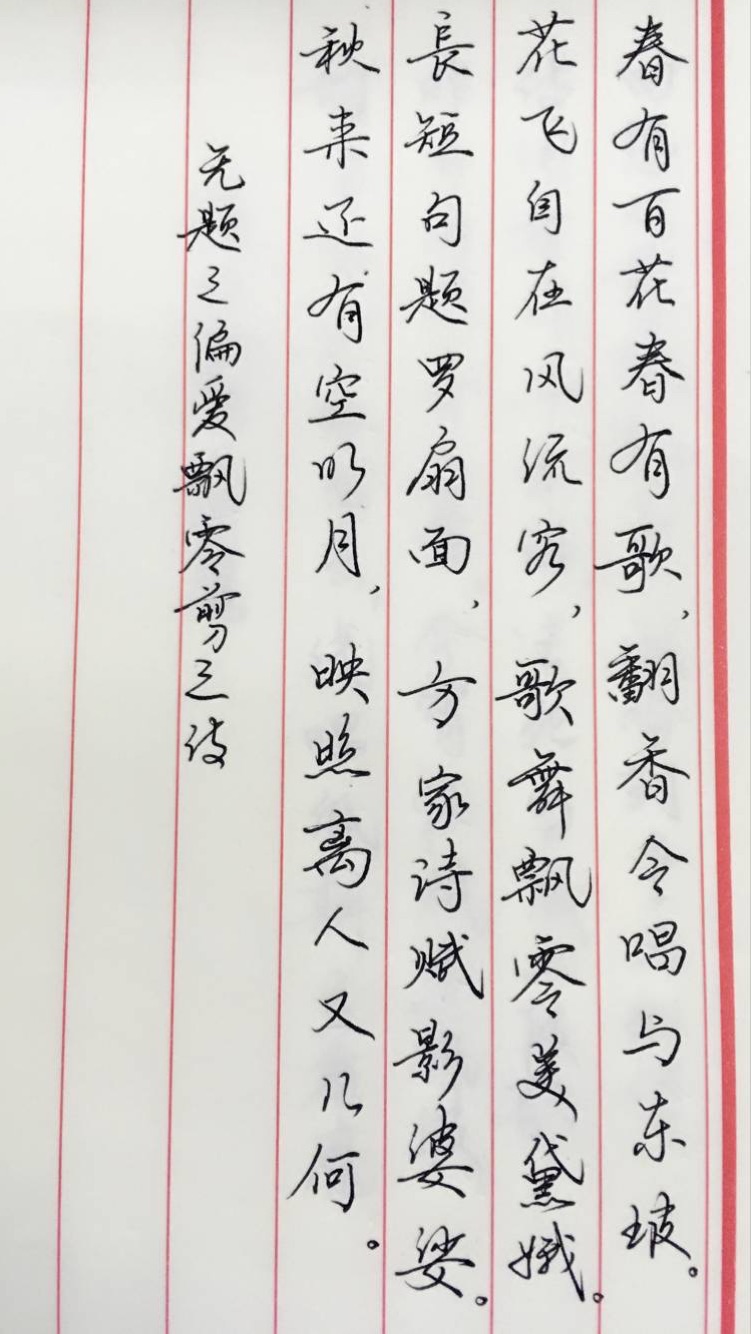 春有百花春有歌，翻香令唱与东坡。
花飞自在风流客，歌舞飘零美黛娥。
長短句题罗扇面，方家诗赋影婆娑。
秋来还有空明月，映照离人又几何。
无题之偏爱飘零剪之